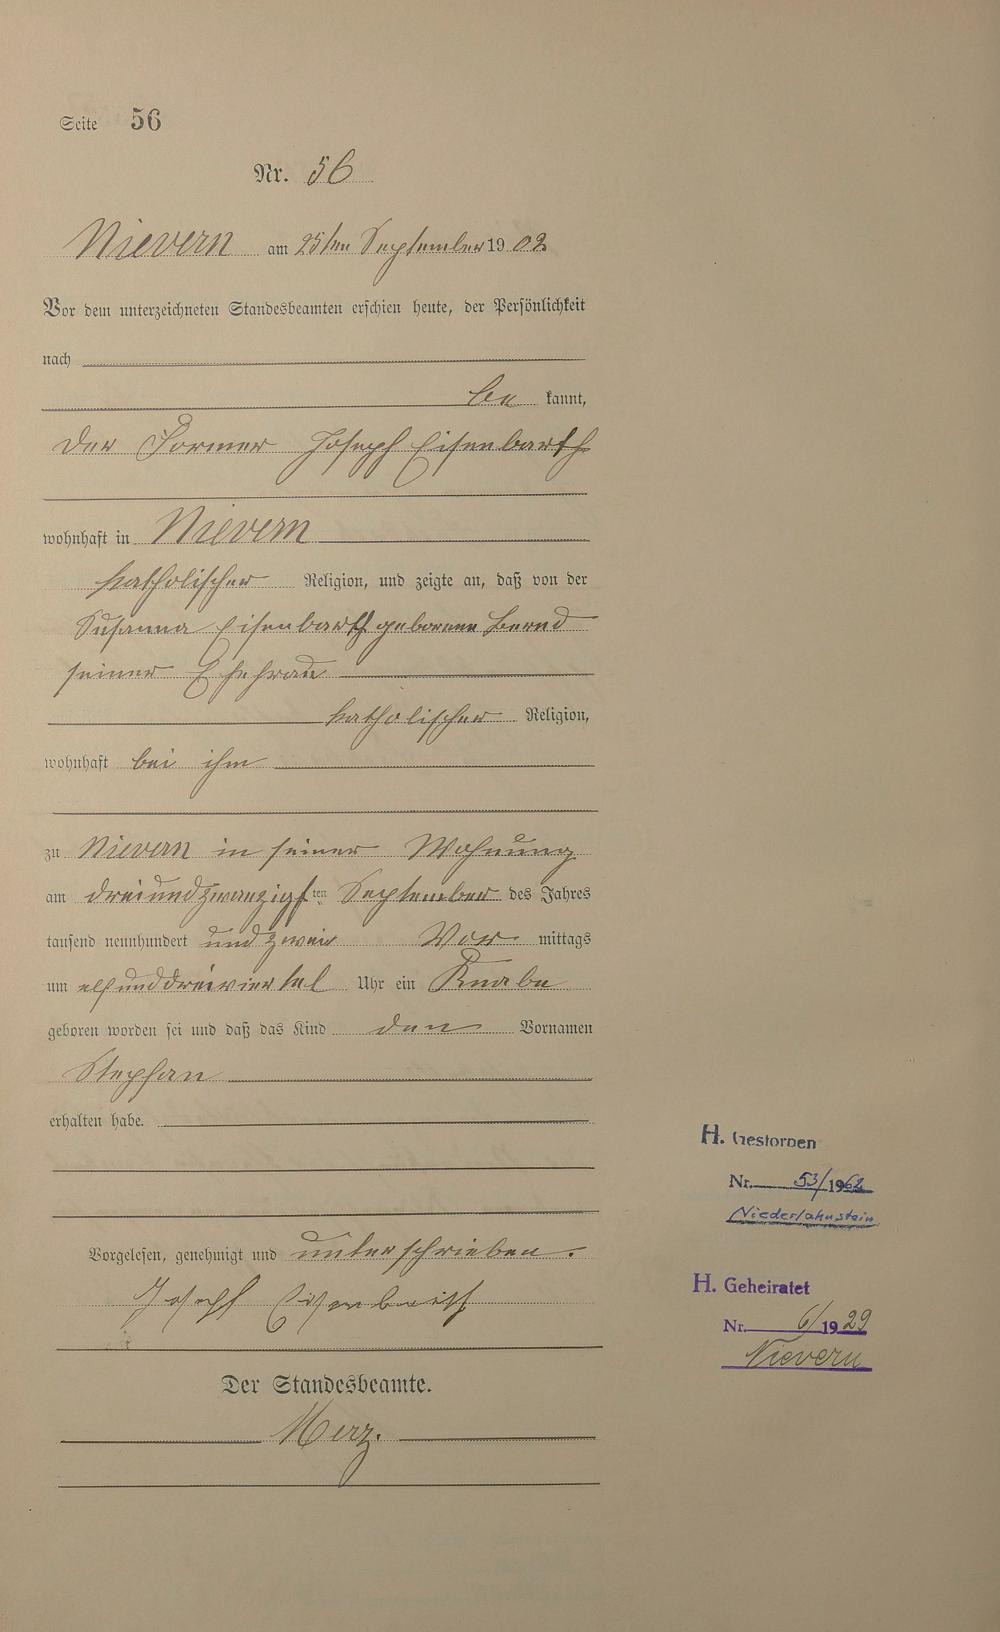 Seite 56
Nr. 56
Nievern am 25ten September 1902
Vor dem unterzeichneten Standesbeamten erschien heute, der Persönlichkeit
nach
be kannt,
der Former Joseph Eisenbarth
wohnhaft in Nievern
katholischer Religion, und zeigte an, daß von der
Susanna Eisenbarth geborene Bernd
seiner Ehefrau
katholischer Religion,
wohnhaft bei ihm
zu Nievern in seiner Wohnung
am dreiundzwanzigsten September des Jahres
tausend neunhundert und zwei Vor mittags
um elfunddreiviertel Uhr ein Knabe
geboren worden sei und daß das Kind den Vornamen
Stephan
erhalten habe.
Vorgelesen, genehmigt und unterschrieben.
Joseph Eisenbarth
Der Standesbeamte.
Merz.
H. Gestorben
Nr. 53/1962
Niederlahnstein
H. Geheiratet
Nr. 6/1929
Nievern